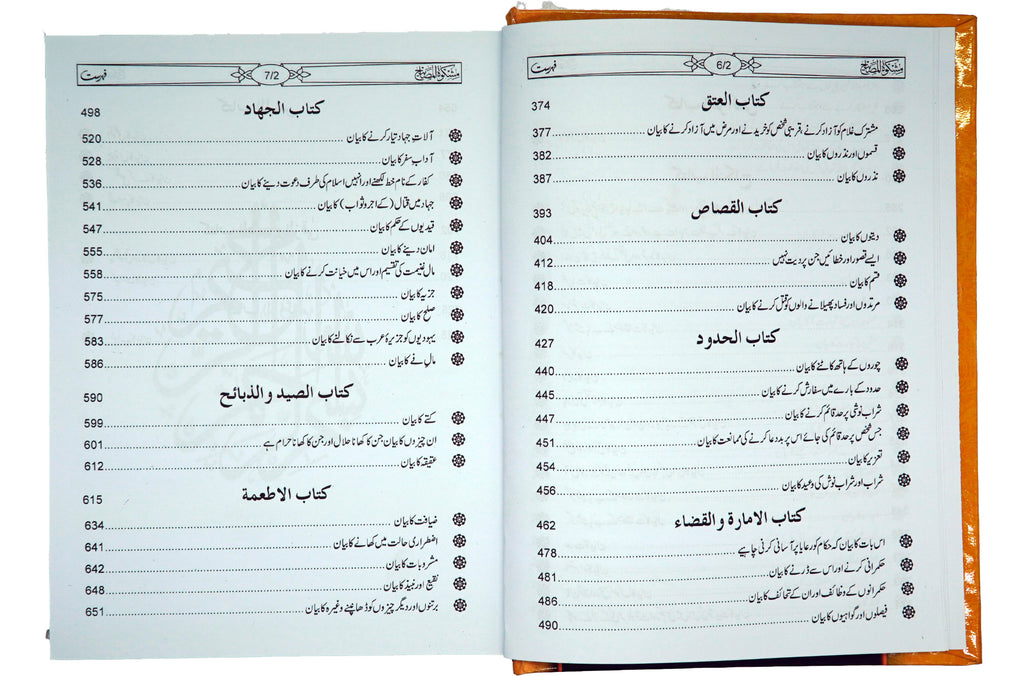 مشكوة المصابيح 6/2 فہرست
كتاب العتق 374
مشترک غلام کو آزاد کرنے، قریبی شخص کو خریدنے اور مرض میں آزاد کرنے کا بیان 377
قسموں اور نذروں کا بیان 382
نذروں کا بیان 387
كتاب القصاص 393
دیتوں کا بیان 404
ایسے قصور اور خطائیں جن پر دیت نہیں 412
قسم کا بیان 418
مرتدوں اور فساد پھیلانے والوں کو قتل کرنے کا بیان 420
كتاب الحدود 427
چوروں کے ہاتھ کاٹنے کا بیان 440
حدود کے بارے میں سفارش کرنے کا بیان 445
شراب نوشی پر حد قائم کرنے کا بیان 447
جس شخص پر حد قائم کی جائے اس پر بددعا کرنے کی ممانعت کا بیان 451
تعزیر کا بیان 454
شراب اور شراب نوش کی وعید کا بیان 456
كتاب الامارة والقضاء 462
اس بات کا بیان کہ حکام کو رعایا پر آسانی کرنی چاہیے 478
حکمرانی کرنے اور اس سے ڈرنے کا بیان 481
حکمرانوں کے وظائف اور ان کے تحائف کا بیان 486
فیصلوں اور گواہیوں کا بیان 490
مشكوة المصابيح 7/2 فہرست
كتاب الجهاد 498
آلات جہاد تیار کرنے کا بیان 520
آداب سفر کا بیان 528
کفار کے نام خط لکھنے اور انہیں اسلام کی طرف دعوت دینے کا بیان 536
جہاد میں قتال (کے اجر و ثواب) کا بیان 541
قیدیوں کے حکم کا بیان 547
امان دینے کا بیان 555
مال غنیمت کی تقسیم اور اس میں خیانت کرنے کا بیان 558
جزیہ کا بیان 575
صلح کا بیان 577
یہودیوں کو جزیرۂ عرب سے نکالنے کا بیان 583
مال فے کا بیان 586
كتاب الصيد والذبائح 590
کتے کا بیان 599
ان چیزوں کا بیان جن کا کھانا حلال اور جن کا کھانا حرام ہے 601
عقیقہ کا بیان 612
كتاب الاطعمة 615
ضیافت کا بیان 634
اضطراری حالت میں کھانے کا بیان 641
مشروبات کا بیان 642
نقیع اور نبیذ کا بیان 648
برتنوں اور دیگر چیزوں کو ڈھانپنے وغیرہ کا بیان 651